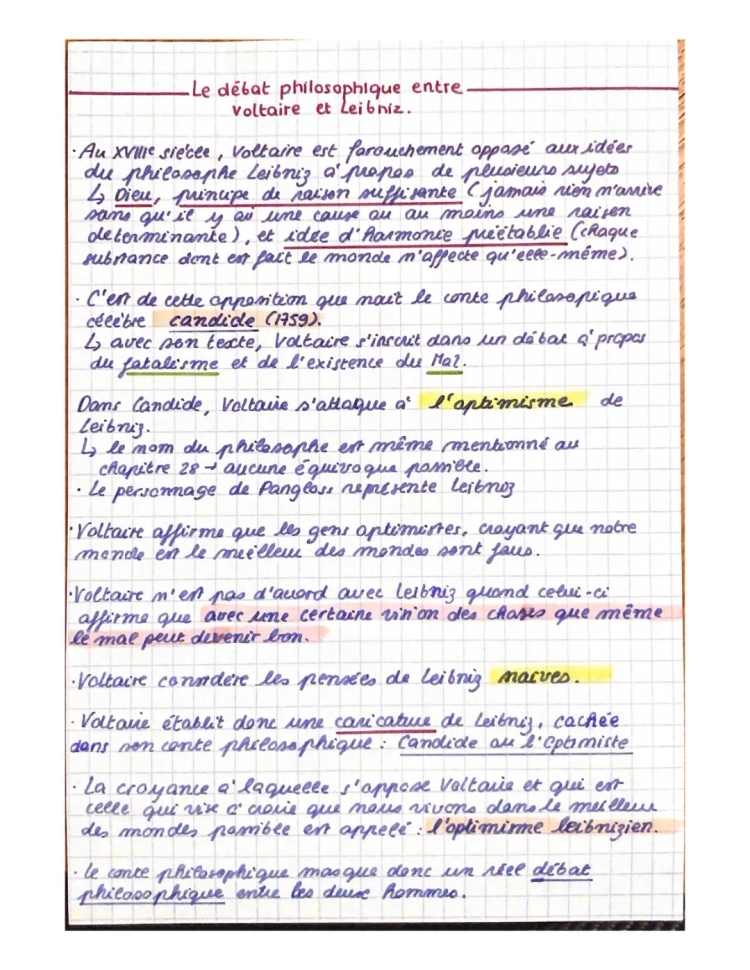 Le débat philosophique entre
Voltaire et Leibniz.
· Au XVIIIe siècle, Voltaire est farouchement opposé aux idées
du philosophe Leibniz à propos de plusieurs sujets
↳ Dieu, principe de raison suffisante (jamais rien n'arrive
sans qu'il y ai une cause ou au moins une raison
determinante), et idée d'Harmonie préétablie (chaque
substance dont est fait le monde n'affecte qu'elle-même).
· C'est de cette opposition que nait le conte philosopique
célèbre candide (1759).
↳ avec son texte, Voltaire s'inscrit dans un débat à propos
du fatalisme et de l'existence du Mal.
Dans Candide, Voltaire s'attaque à l'optimisme de
Leibniz.
↳ le nom du philosophe est même mentionné au
chapitre 28 → aucune équivoque possible.
· Le personnage de Pangloss représente Leibniz
· Voltaire affirme que les gens optimistes, croyant que notre
monde est le meilleur des mondes sont fous.
· Voltaire n'est pas d'accord avec Leibniz quand celui-ci
affirme que avec une certaine vision des choses que même
le mal peut devenir bon.
· Voltaire considère les pensées de Leibniz naïves.
· Voltaire établit donc une caricature de Leibniz, cachée
dans son conte philosophique : Candide ou l'Optimiste
· La croyance à laquelle s'oppose Voltaire et qui est
celle qui vise à croire que nous vivons dans le meilleur
des mondes possible est appelé : l'optimisme leibnizien.
· Le conte philosophique masque donc un réel débat
philosophique entre les deux hommes.